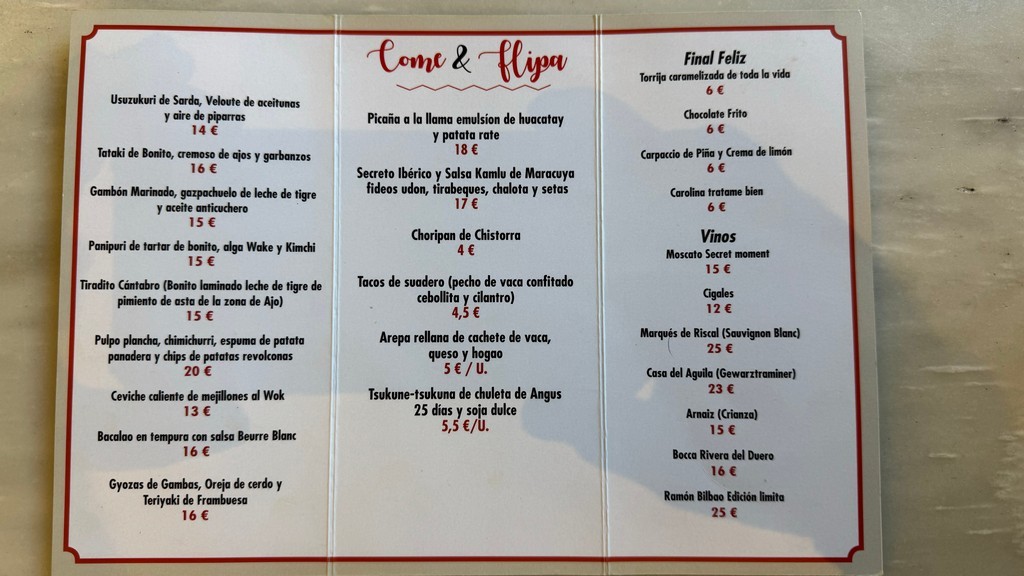 Usuzukuri de Sarda, Veloute de aceitunas
y aire de piparras
14 €
Tataki de Bonito, cremoso de ajos y garbanzos
16 €
Gambón Marinado, gazpachuelo de leche de tigre
y aceite anticuchero
15 €
Panipuri de tartar de bonito, alga Wake y Kimchi
15 €
Tiradito Cántabro (Bonito laminado leche de tigre de
pimiento de asta de la zona de Ajo)
15 €
Pulpo plancha, chimichurri, espuma de patata
panadera y chips de patatas revolconas
20 €
Ceviche caliente de mejillones al Wok
13 €
Bacalao en tempura con salsa Beurre Blanc
16 €
Gyozas de Gambas, Oreja de cerdo y
Teriyaki de Frambuesa
16 €
Come & Flipa
Picaña a la llama emulsion de huacatay
y patata rate
18 €
Secreto Ibérico y Salsa Kamlu de Maracuya
fideos udon, tirabeques, chalota y setas
17 €
Choripan de Chistorra
4 €
Tacos de suadero (pecho de vaca confitado
cebollita y cilantro)
4,5 €
Arepa rellana de cachete de vaca,
queso y hogao
5 € / U.
Tsukune-tsukuna de chuleta de Angus
25 días y soja dulce
5,5 €/U.
Final Feliz
Torrija caramelizada de toda la vida
6 €
Chocolate Frito
6 €
Carpaccio de Piña y Crema de limón
6 €
Carolina tratame bien
6 €
Vinos
Moscato Secret moment
15 €
Cigales
12 €
Marqués de Riscal (Sauvignon Blanc)
25 €
Casa del Aguila (Gewarztraminer)
23 €
Arnaiz (Crianza)
15 €
Bocca Rivera del Duero
16 €
Ramón Bilbao Edición limita
25 €